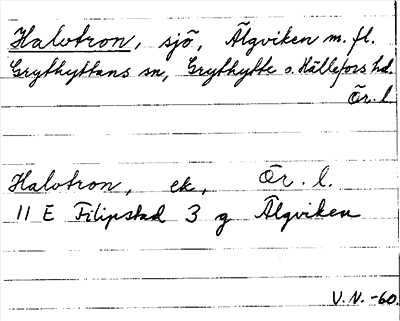 Halvtron, sjö, Älgviken m. fl.
Grythyttans sn, Grythytte o. Hällefors hd.
Ör. l.
Halvtron, ek, Ör. l.
11 E Filipstad 3 g Älgviken
V. N. -60.